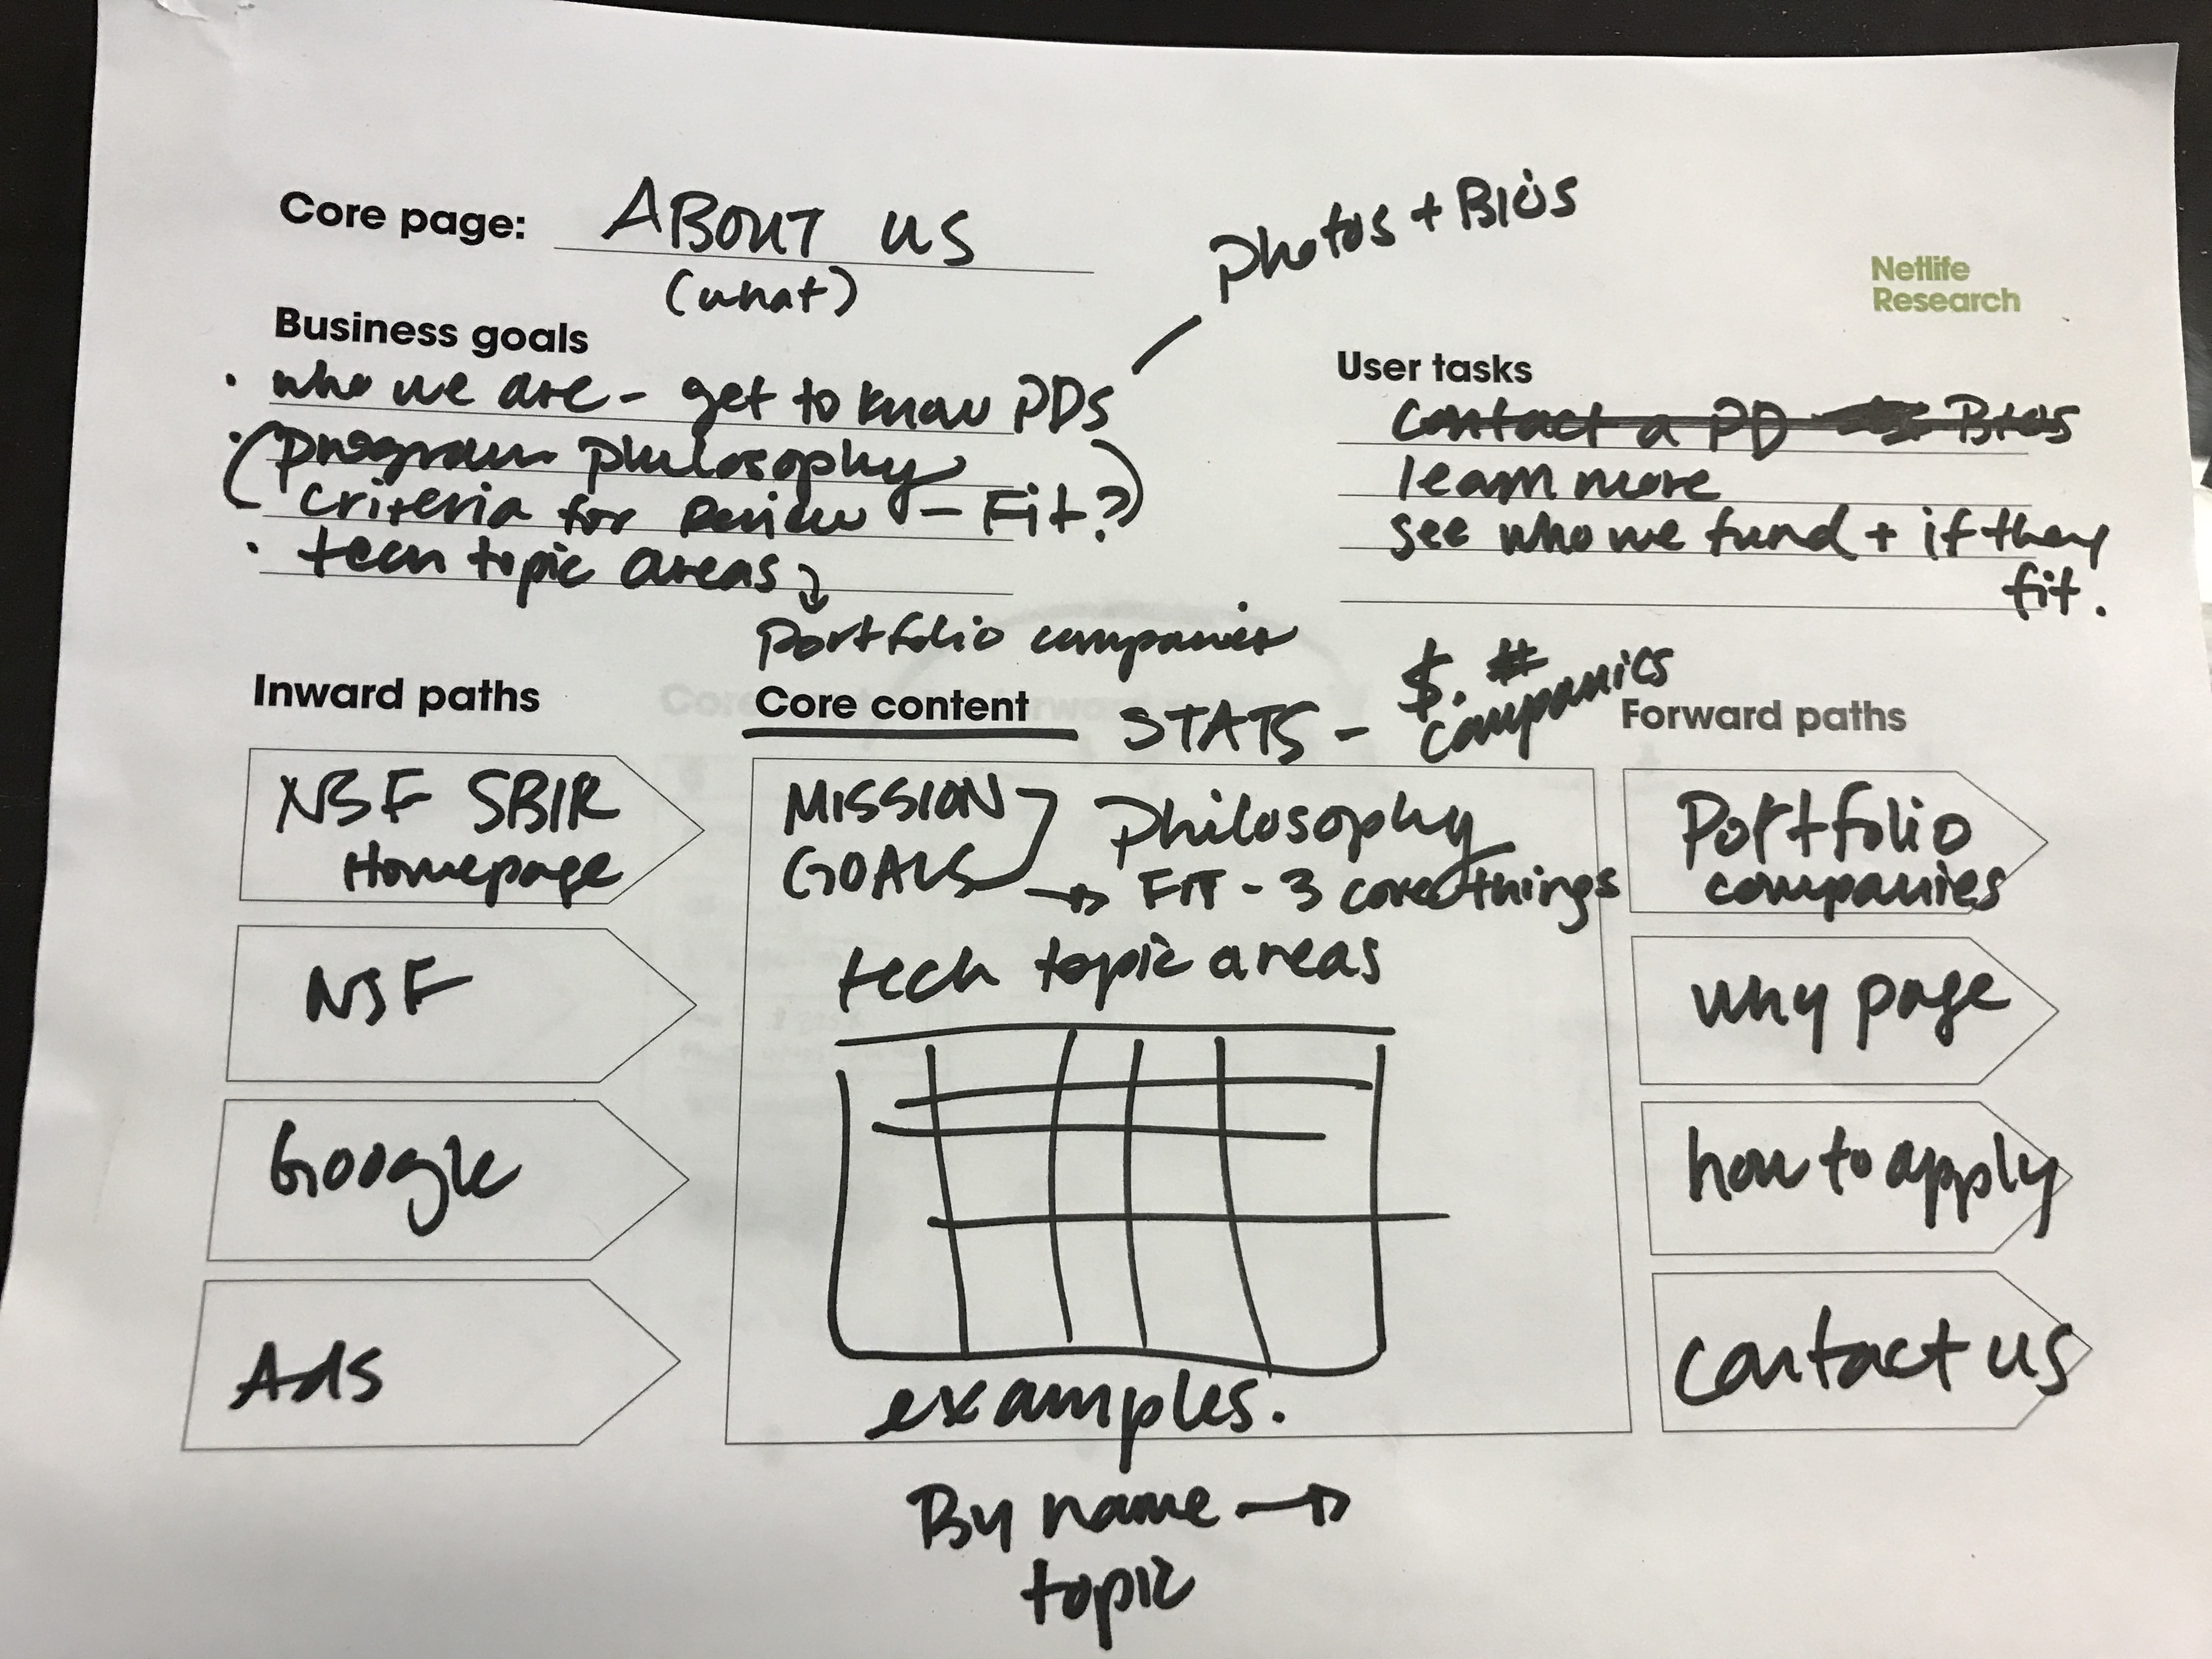 Core page: ABOUT US
(what)
photos + BIOS
Netlife
Research
Business goals
· who we are - get to know PDs
· (program philosophy
criteria for Review - Fit?)
· tech topic areas
portfolio companies
User tasks
contact a PD Bios
learn more
see who we fund + if they
fit.
Inward paths
NSF SBIR
Homepage
NSF
Google
Ads
Core content
STATS - $. #
companies
MISSION
GOALS
Philosophy
→ FIT - 3 core things
tech topic areas
examples.
By name →
topic
Forward paths
Portfolio
companies
why page
how to apply
contact us